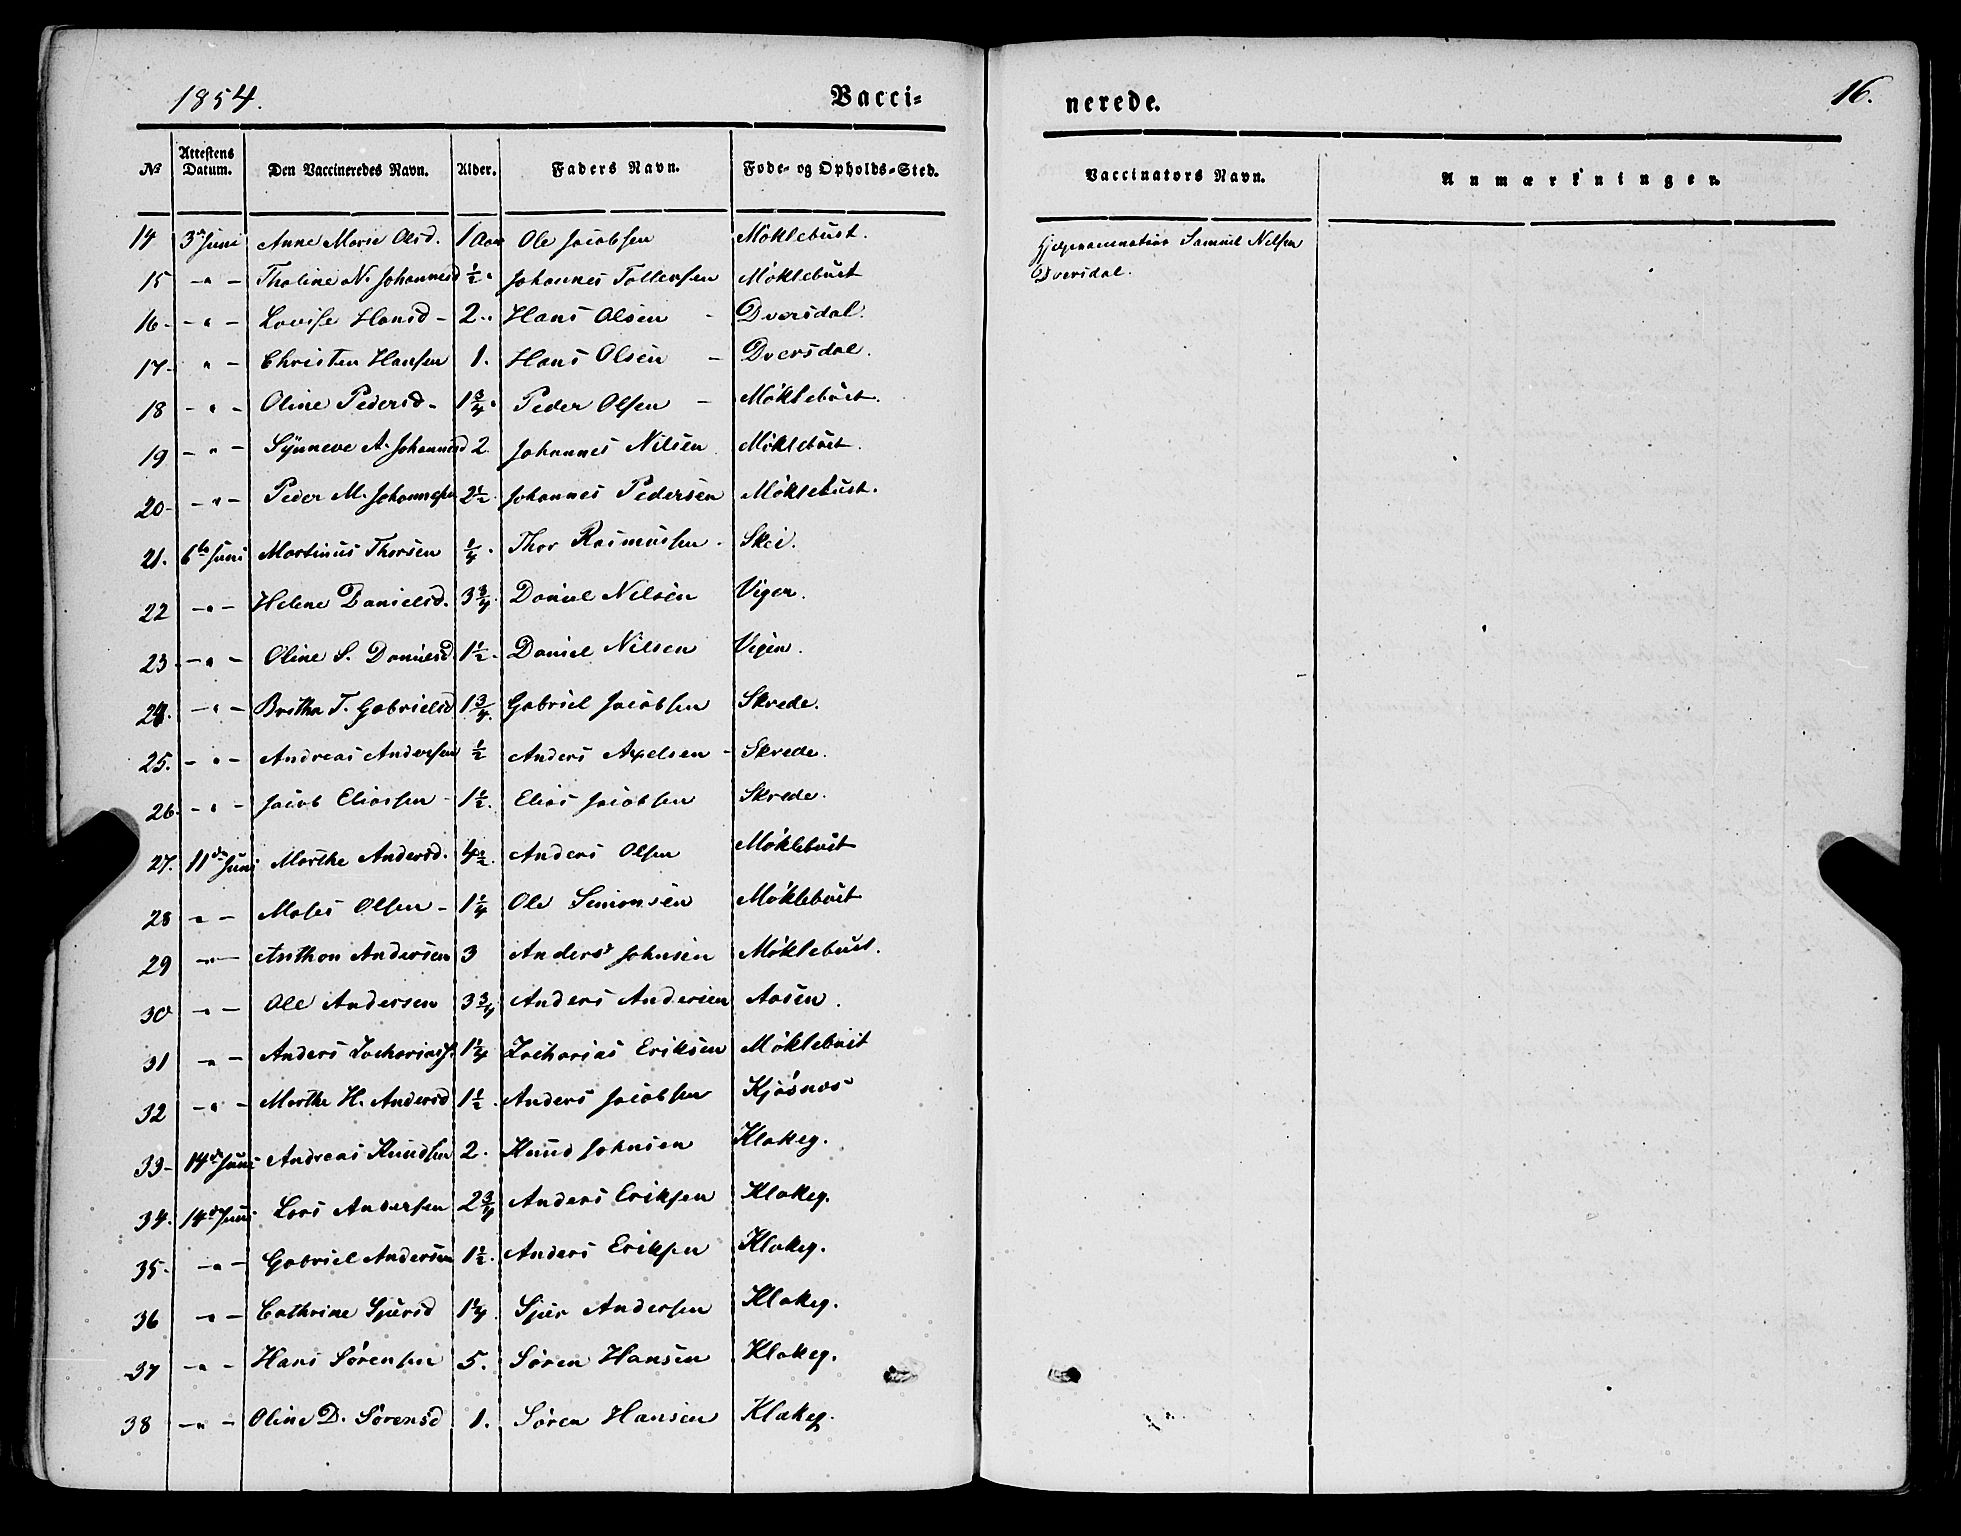 1854. Vacci-
nerede. 16.
No Attestens Datum. Den Vaccineredes Navn. Alder. Faders Navn. Føde- og Opholds-Sted. Vaccinators Navn. Anmærkninger.
14 3de Juni Anne Marie Olsd. 1 Aar Ole Jacobsen Møklebust. Hjelpevaccinatør Samuel Nilsen
15 -"- Thaline N. Johannesd 1/2. Johannes Tollevsen Møklebust Dversdal.
16- -"- Lovise Hansd- 2.. Hans Olsen - Dversdal.
17- " - Christen Hansen 1. Hans Olsen - Dversdal.
18 -"- Oline Pedersd- 1 3/4. Peder Olsen - Møklebust.
19 -"- Synneve A. Johannesd 2. Johannes Nilsen. Møklebust.
20- -"- Peder M. Johannesen 2 1/2. Johannes Pedersen Møklebust.
21. 6te Juni Martinus Thorsen 1/4. Thor Rasmussen. Skei.
22 -"- Helene Danielsd. 3 3/4. Daniel Nilsen Vigen.
23. -"- Oline S. Danielsd. 1 1/2. Daniel Nilsen Vigen.
24. -"- Brithe T. Gabrielsd 1 3/4. Gabriel Jacobsen Skrede.
25. -"- Andreas Andersen 1/2 Anders Axelsen - Skrede.
26. -"- Jacob Eliassen - 1 1/2. Elias Jacobsen Skrede.
27. 11de Juni Marthe Andersd. 4 1/2. Anders Olsen Møklebust
28 "- Moses Olsen - 1 1/4 Ole Simonsen Møklebust
29 -"- Anthon Andersen 3 Anders Johnsen Møklebust.
30 -"- Ole Andersen 3 3/4 Anders Andersen Aasen.
31 "- Anders Zachariass. 1 1/4 Zacharias Eriksen Møklebust
32 -"- Marthe H. Andersd 1 1/2. Anders Jacobsen Kjøsnes
33- 14de Juni Andreas Knudsen 2. Knud Johnsen Klakeg.
34. 14de Juni Lars Andersen 2 3/4 Anders Eriksen Klakeg.
35- -"- Gabriel Andersen 1 1/2. Anders Eriksen Klakeg.
36 -"- Cathrine Sjursd 1 1/4. Sjur Andersen Klakeg.
37 -"- Hans Sørensen 5. Søren Hansen Klakeg.
38 -"- Oline D. Sørensd 1. Søren Hansen Klakeg.